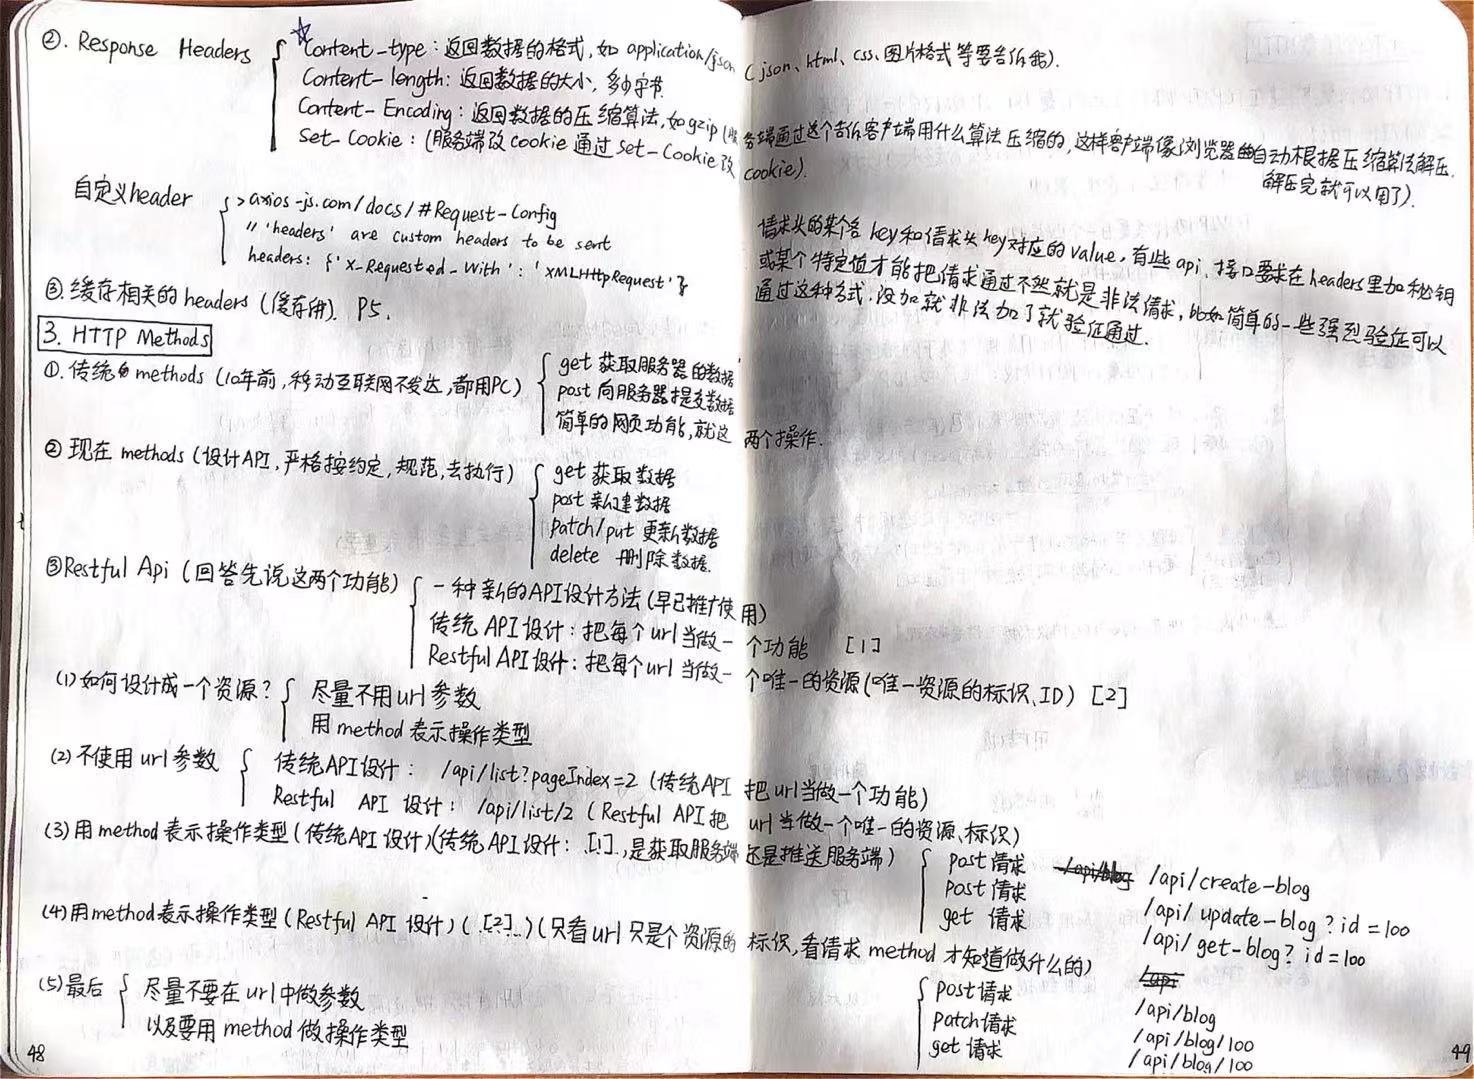 ②. Response Headers
Content-type：返回数据的格式，如 application/json (json、html、css、图片格式等要告诉我).
Content-length：返回数据的大小，多少字节.
Content-Encoding：返回数据的压缩算法，如gzip (服务端通过这个告诉客户端用什么算法压缩的，这样客户端像浏览器自动根据压缩算法解压.
解压完就可以用了).
Set-Cookie：(服务端改cookie通过set-Cookie改cookie).
自定义header
> axios-js.com/docs/#Request-Config
// 'headers' are custom headers to be sent
headers: {'X-Requested-With': 'XMLHttpRequest'}
请求头的某个名 key和请求头key对应的value，有些api、接口要求在headers里加秘钥
或某个特定值才能把请求通过不然就是非法请求，比如简单的一些强烈验证可以
通过这种方式.没加就非法加了就验证通过.
③.缓存相关的headers (缓存讲). P5.
3. HTTP Methods
①.传统的methods (10年前，移动互联网不发达，都用PC)
get 获取服务器的数据
post 向服务器提交数据
简单的网页功能，就这两个操作.
② 现在 methods (设计API，严格按约定，规范，去执行)
get 获取数据
post 新建数据
patch/put 更新数据
delete 删除数据.
③Restful Api (回答先说这两个功能)
一种新的API设计方法 (早已推广使用)
传统 API设计：把每个url当做一个功能 [1]
Restful API设计：把每个url当做一个唯一的资源(唯一资源的标识、ID) [2]
(1)如何设计成一个资源？
尽量不用url参数
用method表示操作类型
(2)不使用url参数
传统API设计： /api/list?pageIndex=2 (传统API把url当做一个功能)
Restful API 设计： /api/list/2 (Restful API把url当做一个唯一的资源、标识)
(3)用method表示操作类型(传统API设计)(传统API设计：…[1]…，是获取服务端还是推送服务端)
post请求 /api/create-blog
post请求 /api/update-blog?id=100
get 请求 /api/get-blog?id=100
(4)用method表示操作类型(Restful API设计) (…[2]…) (只看url只是个资源的标识，看请求method才知道做什么的)
post请求 /api/blog
patch请求 /api/blog/100
get 请求 /api/blog/100
(5)最后
尽量不要在url中做参数
以及要用method做操作类型
48
49